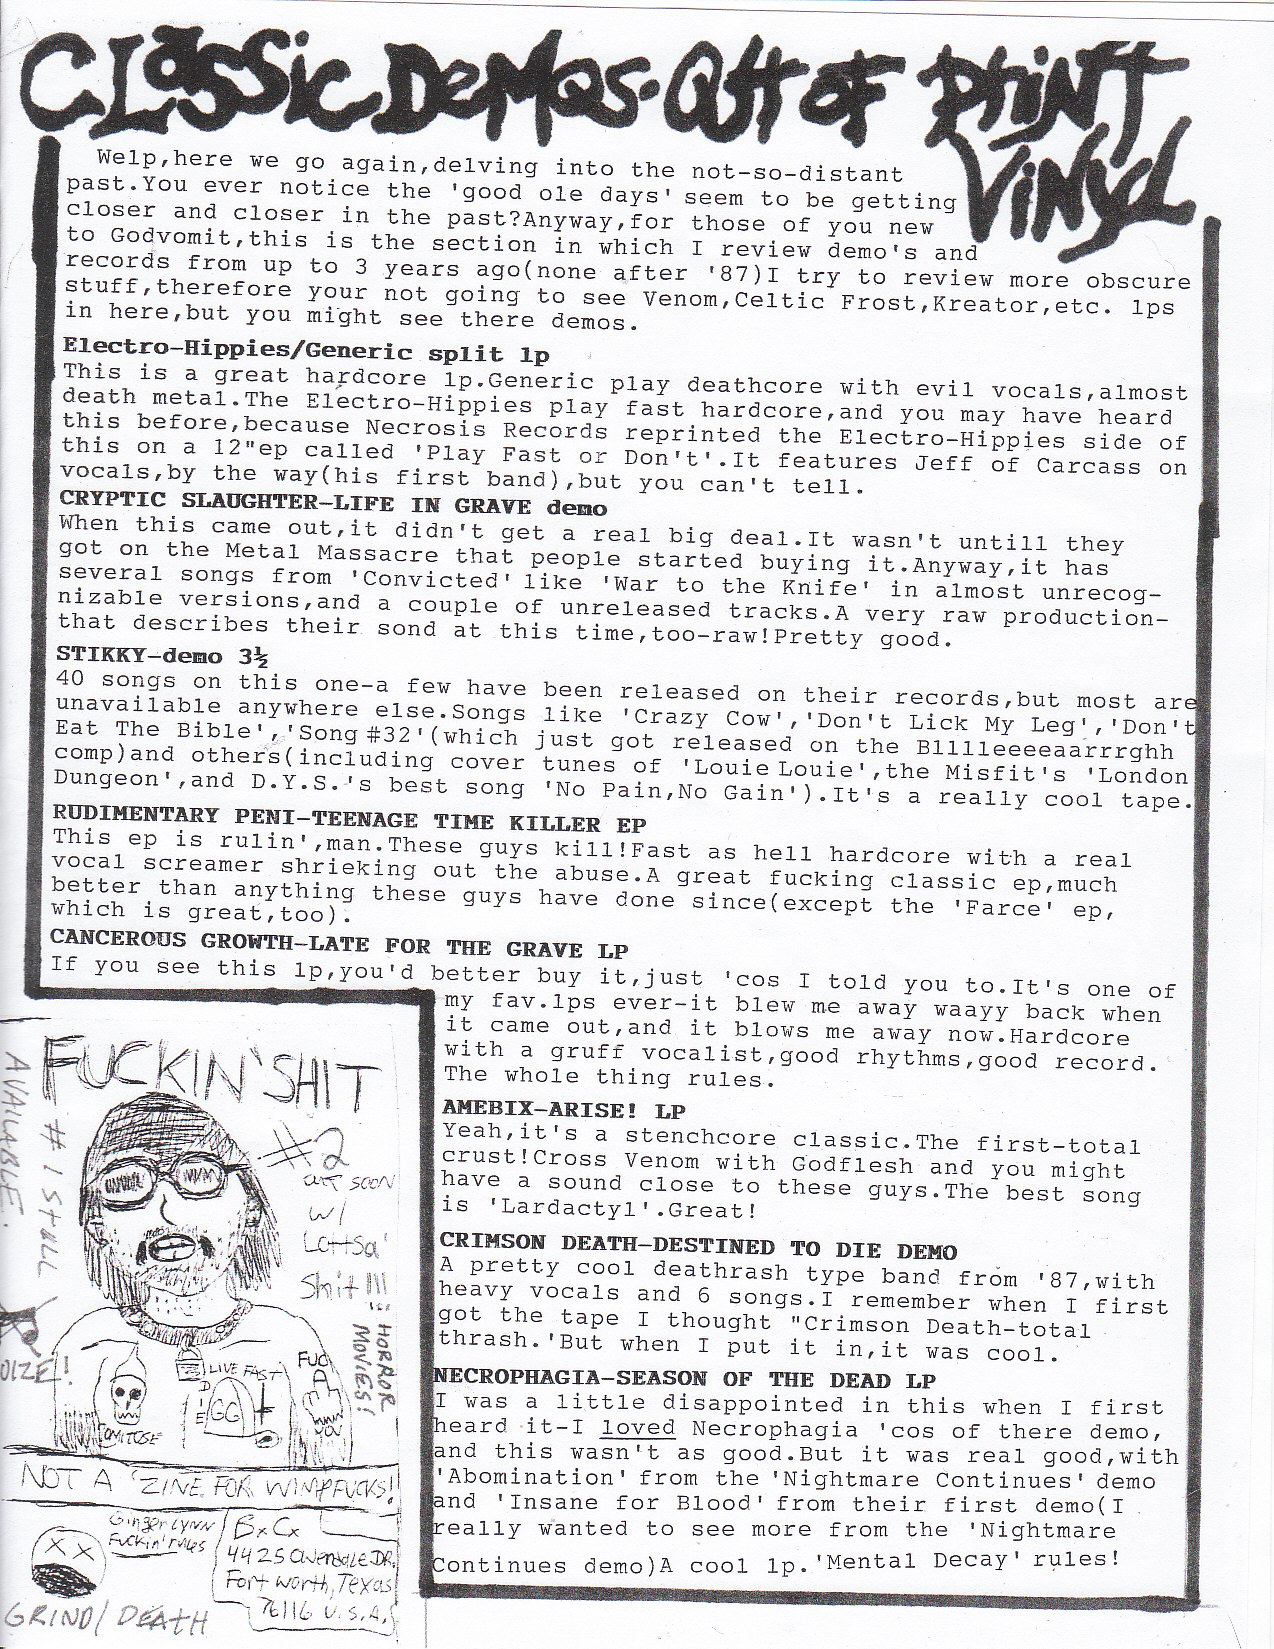 CLassic DeMos-Out oF PRiNT
ViNyL
Welp,here we go again,delving into the not-so-distant
past.You ever notice the 'good ole days' seem to be getting
closer and closer in the past?Anyway,for those of you new
to Godvomit,this is the section in which I review demo's and
records from up to 3 years ago(none after '87)I try to review more obscure
stuff,therefore your not going to see Venom,Celtic Frost,Kreator,etc. lps
in here,but you might see there demos.
Electro-Hippies/Generic split lp
This is a great hardcore lp.Generic play deathcore with evil vocals,almost
death metal.The Electro-Hippies play fast hardcore,and you may have heard
this before,because Necrosis Records reprinted the Electro-Hippies side of
this on a 12"ep called 'Play Fast or Don't'.It features Jeff of Carcass on
vocals,by the way(his first band),but you can't tell.
CRYPTIC SLAUGHTER-LIFE IN GRAVE demo
When this came out,it didn't get a real big deal.It wasn't untill they
got on the Metal Massacre that people started buying it.Anyway,it has
several songs from 'Convicted' like 'War to the Knife' in almost unrecog-
nizable versions,and a couple of unreleased tracks.A very raw production-
that describes their sond at this time,too-raw!Pretty good.
STIKKY-demo 3½
40 songs on this one-a few have been released on their records,but most are
unavailable anywhere else.Songs like 'Crazy Cow','Don't Lick My Leg','Don't
Eat The Bible','Song #32'(which just got released on the Blllleeeeaarrrghh
comp)and others(including cover tunes of 'Louie Louie',the Misfit's 'London
Dungeon',and D.Y.S.'s best song 'No Pain,No Gain').It's a really cool tape.
RUDIMENTARY PENI-TEENAGE TIME KILLER EP
This ep is rulin',man.These guys kill!Fast as hell hardcore with a real
vocal screamer shrieking out the abuse.A great fucking classic ep,much
better than anything these guys have done since(except the 'Farce' ep,
which is great,too).
CANCEROUS GROWTH-LATE FOR THE GRAVE LP
If you see this lp,you'd better buy it,just 'cos I told you to.It's one of
my fav.lps ever-it blew me away waayy back when
it came out,and it blows me away now.Hardcore
with a gruff vocalist,good rhythms,good record.
The whole thing rules.
AMEBIX-ARISE! LP
Yeah,it's a stenchcore classic.The first-total
crust!Cross Venom with Godflesh and you might
have a sound close to these guys.The best song
is 'Lardactyl'.Great!
CRIMSON DEATH-DESTINED TO DIE DEMO
A pretty cool deathrash type band from '87,with
heavy vocals and 6 songs.I remember when I first
got the tape I thought "Crimson Death-total
thrash.'But when I put it in,it was cool.
NECROPHAGIA-SEASON OF THE DEAD LP
I was a little disappointed in this when I first
heard it-I loved Necrophagia 'cos of there demo,
and this wasn't as good.But it was real good,with
'Abomination' from the 'Nightmare Continues' demo
and 'Insane for Blood' from their first demo(I
really wanted to see more from the 'Nightmare
Continues demo)A cool lp.'Mental Decay' rules!
FUCKIN' SHIT
#2
out soon
w/
Lottsa'
Shit!!!
HORROR
MOVIES!
#1 STILL
AVAILABLE.
OIZE!
LIVE FAST
DIE
GG
FUC
YOU
COMITOSE
NOT A 'ZINE FOR WIMPFUCKS!
Ginger Lynn
Fuckin' rules
BxCx
4425 Ovendale DR.
Fort Worth, Texas
76116 U.S.A.
GRIND/DEATH